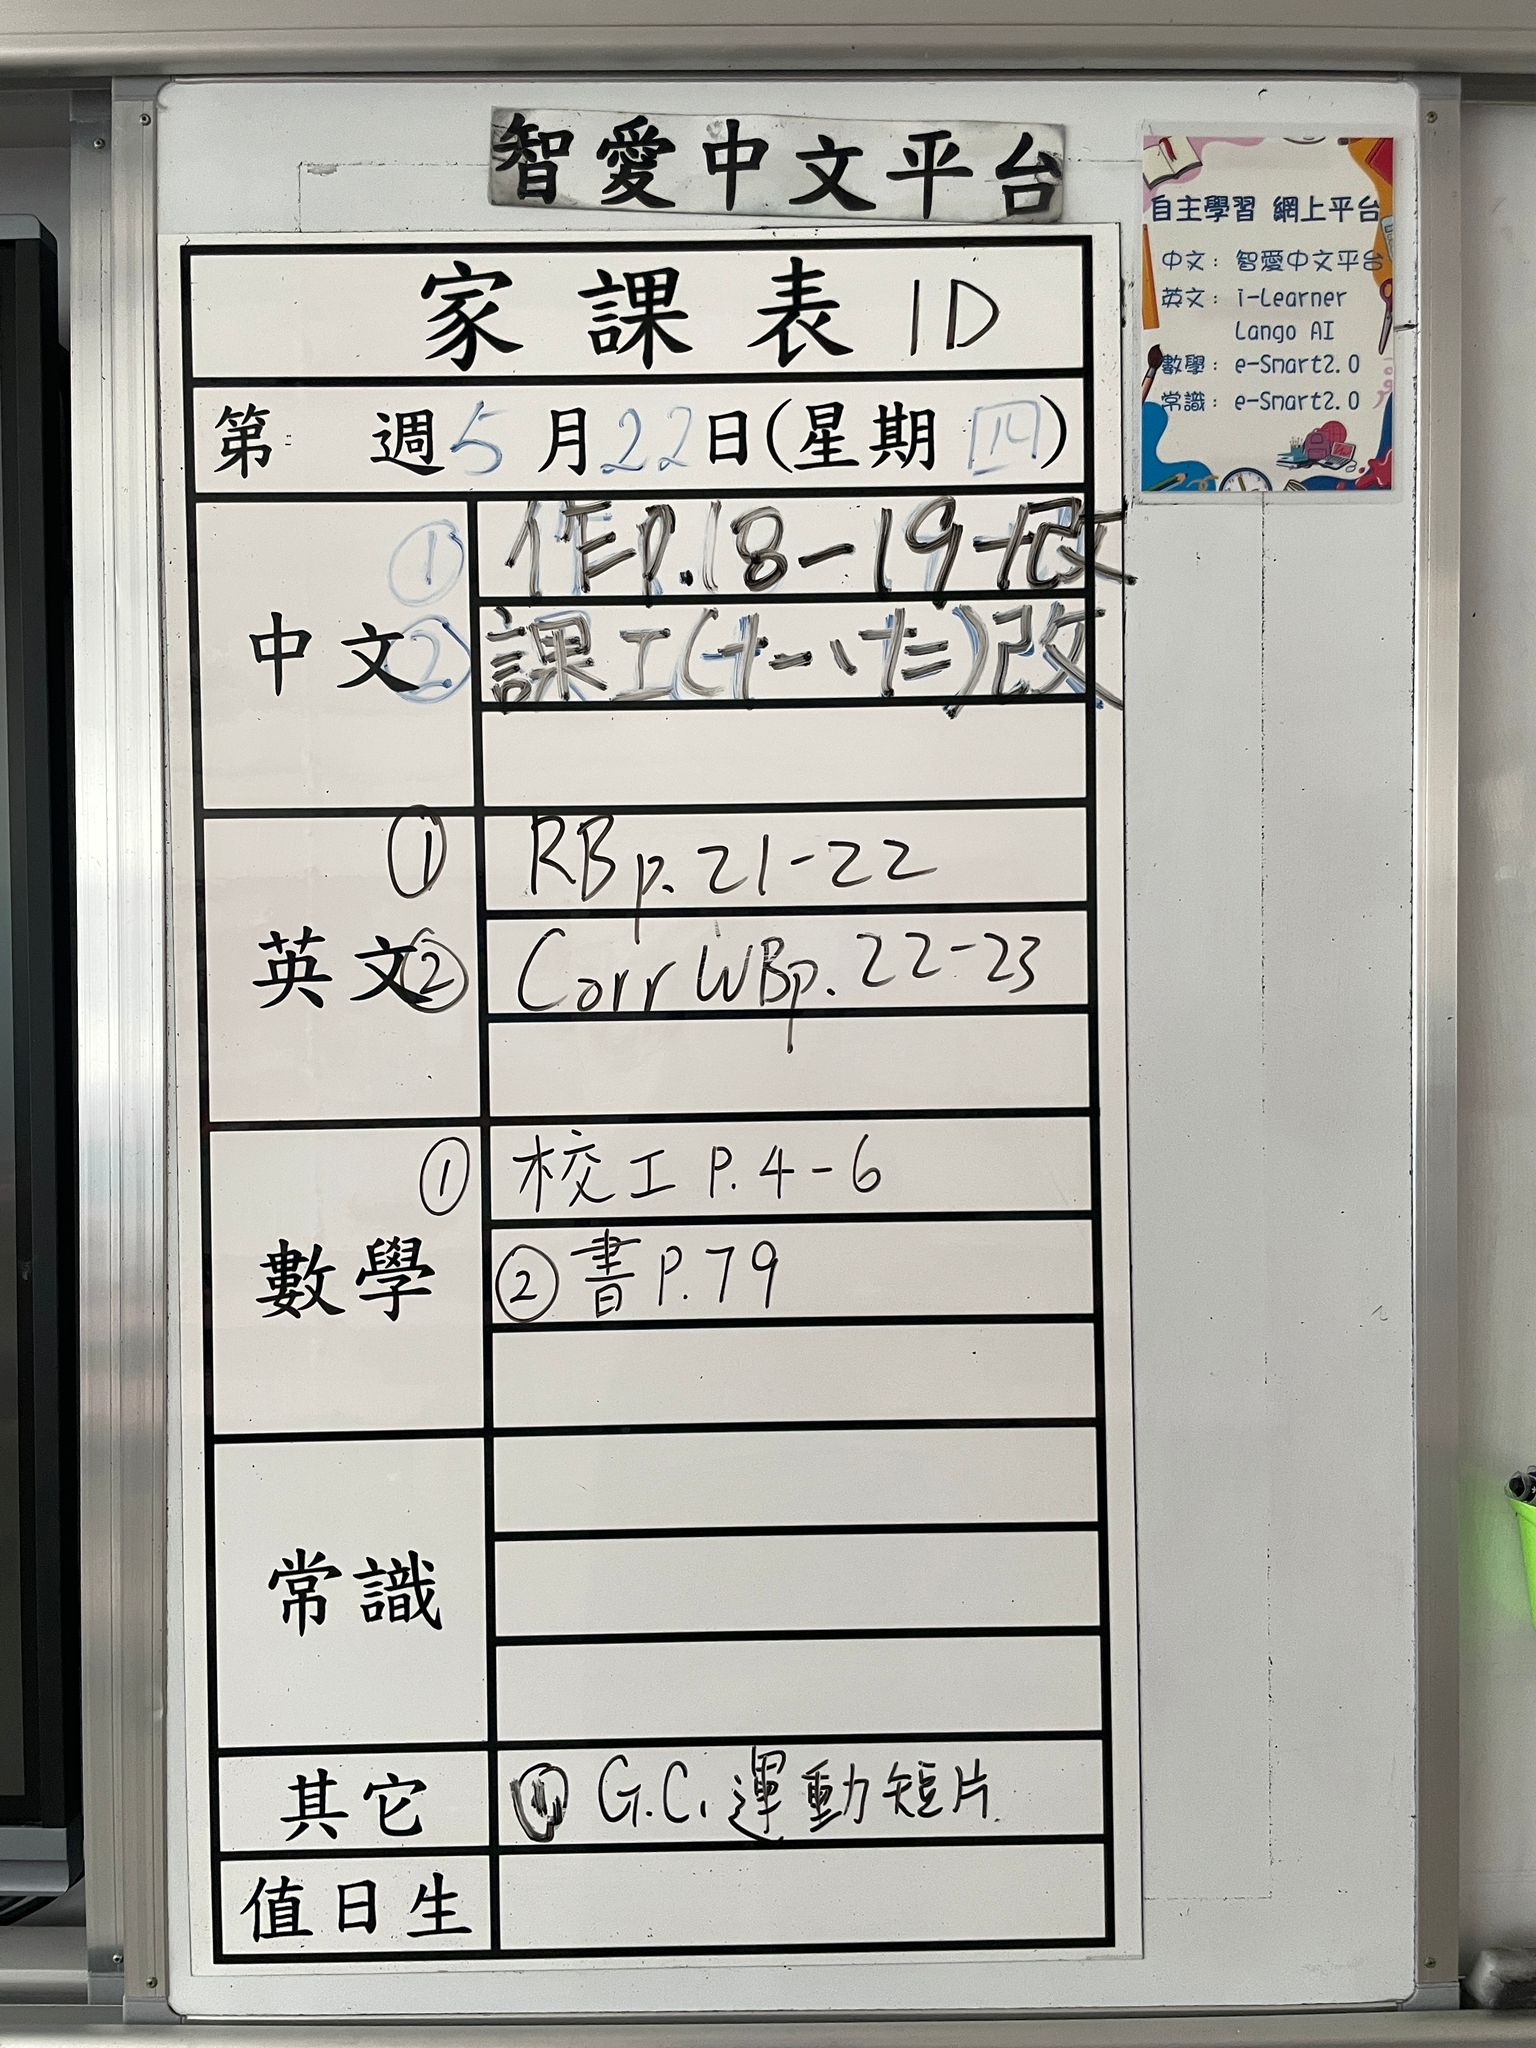 智愛中文平台
自主學習 網上平台
中文： 智愛中文平台
英文： i-Learner
Lango AI
數學： e-Smart2.0
常識： e-Smart2.0
家課表 1D
第 週 5月22日(星期四)
中文
① 作P.18-19+改
② 課工(十一、十二)改
英文
① RB p.21-22
② Corr WB p.22-23
數學
① 校工 P.4-6
② 書 P.79
常識
其它
① G.C. 運動短片
值日生